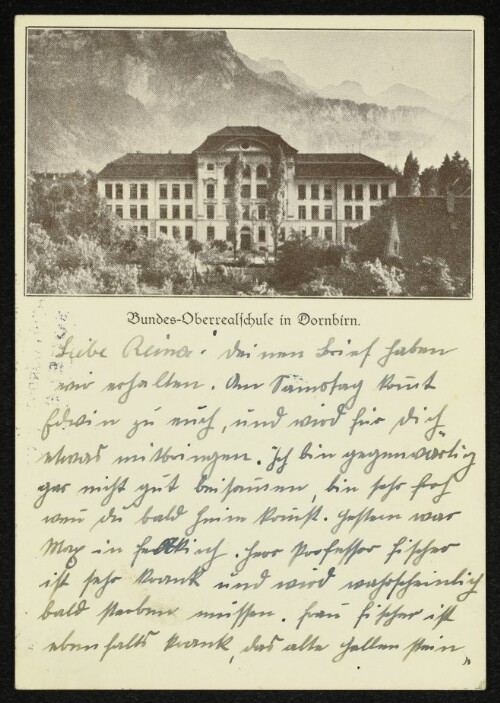 Bundes-Oberrealschule in Dornbirn.
Liebe Reina! Deinen Brief haben
wir erhalten. Am Samstag komt
Edwin zu euch, und wird für dich
etwas mitbringen. Ich bin gegenwärtig
gar nicht gut beisamen, bin sehr froh
wen du bald heim komst. Gestern war
Max in Feldkirch. Herr Professor Fischer
ist sehr krank und wird wahrscheinlich
bald sterben müssen. Frau Fischer ist
ebenfalls krank, das alte Hellenstein„